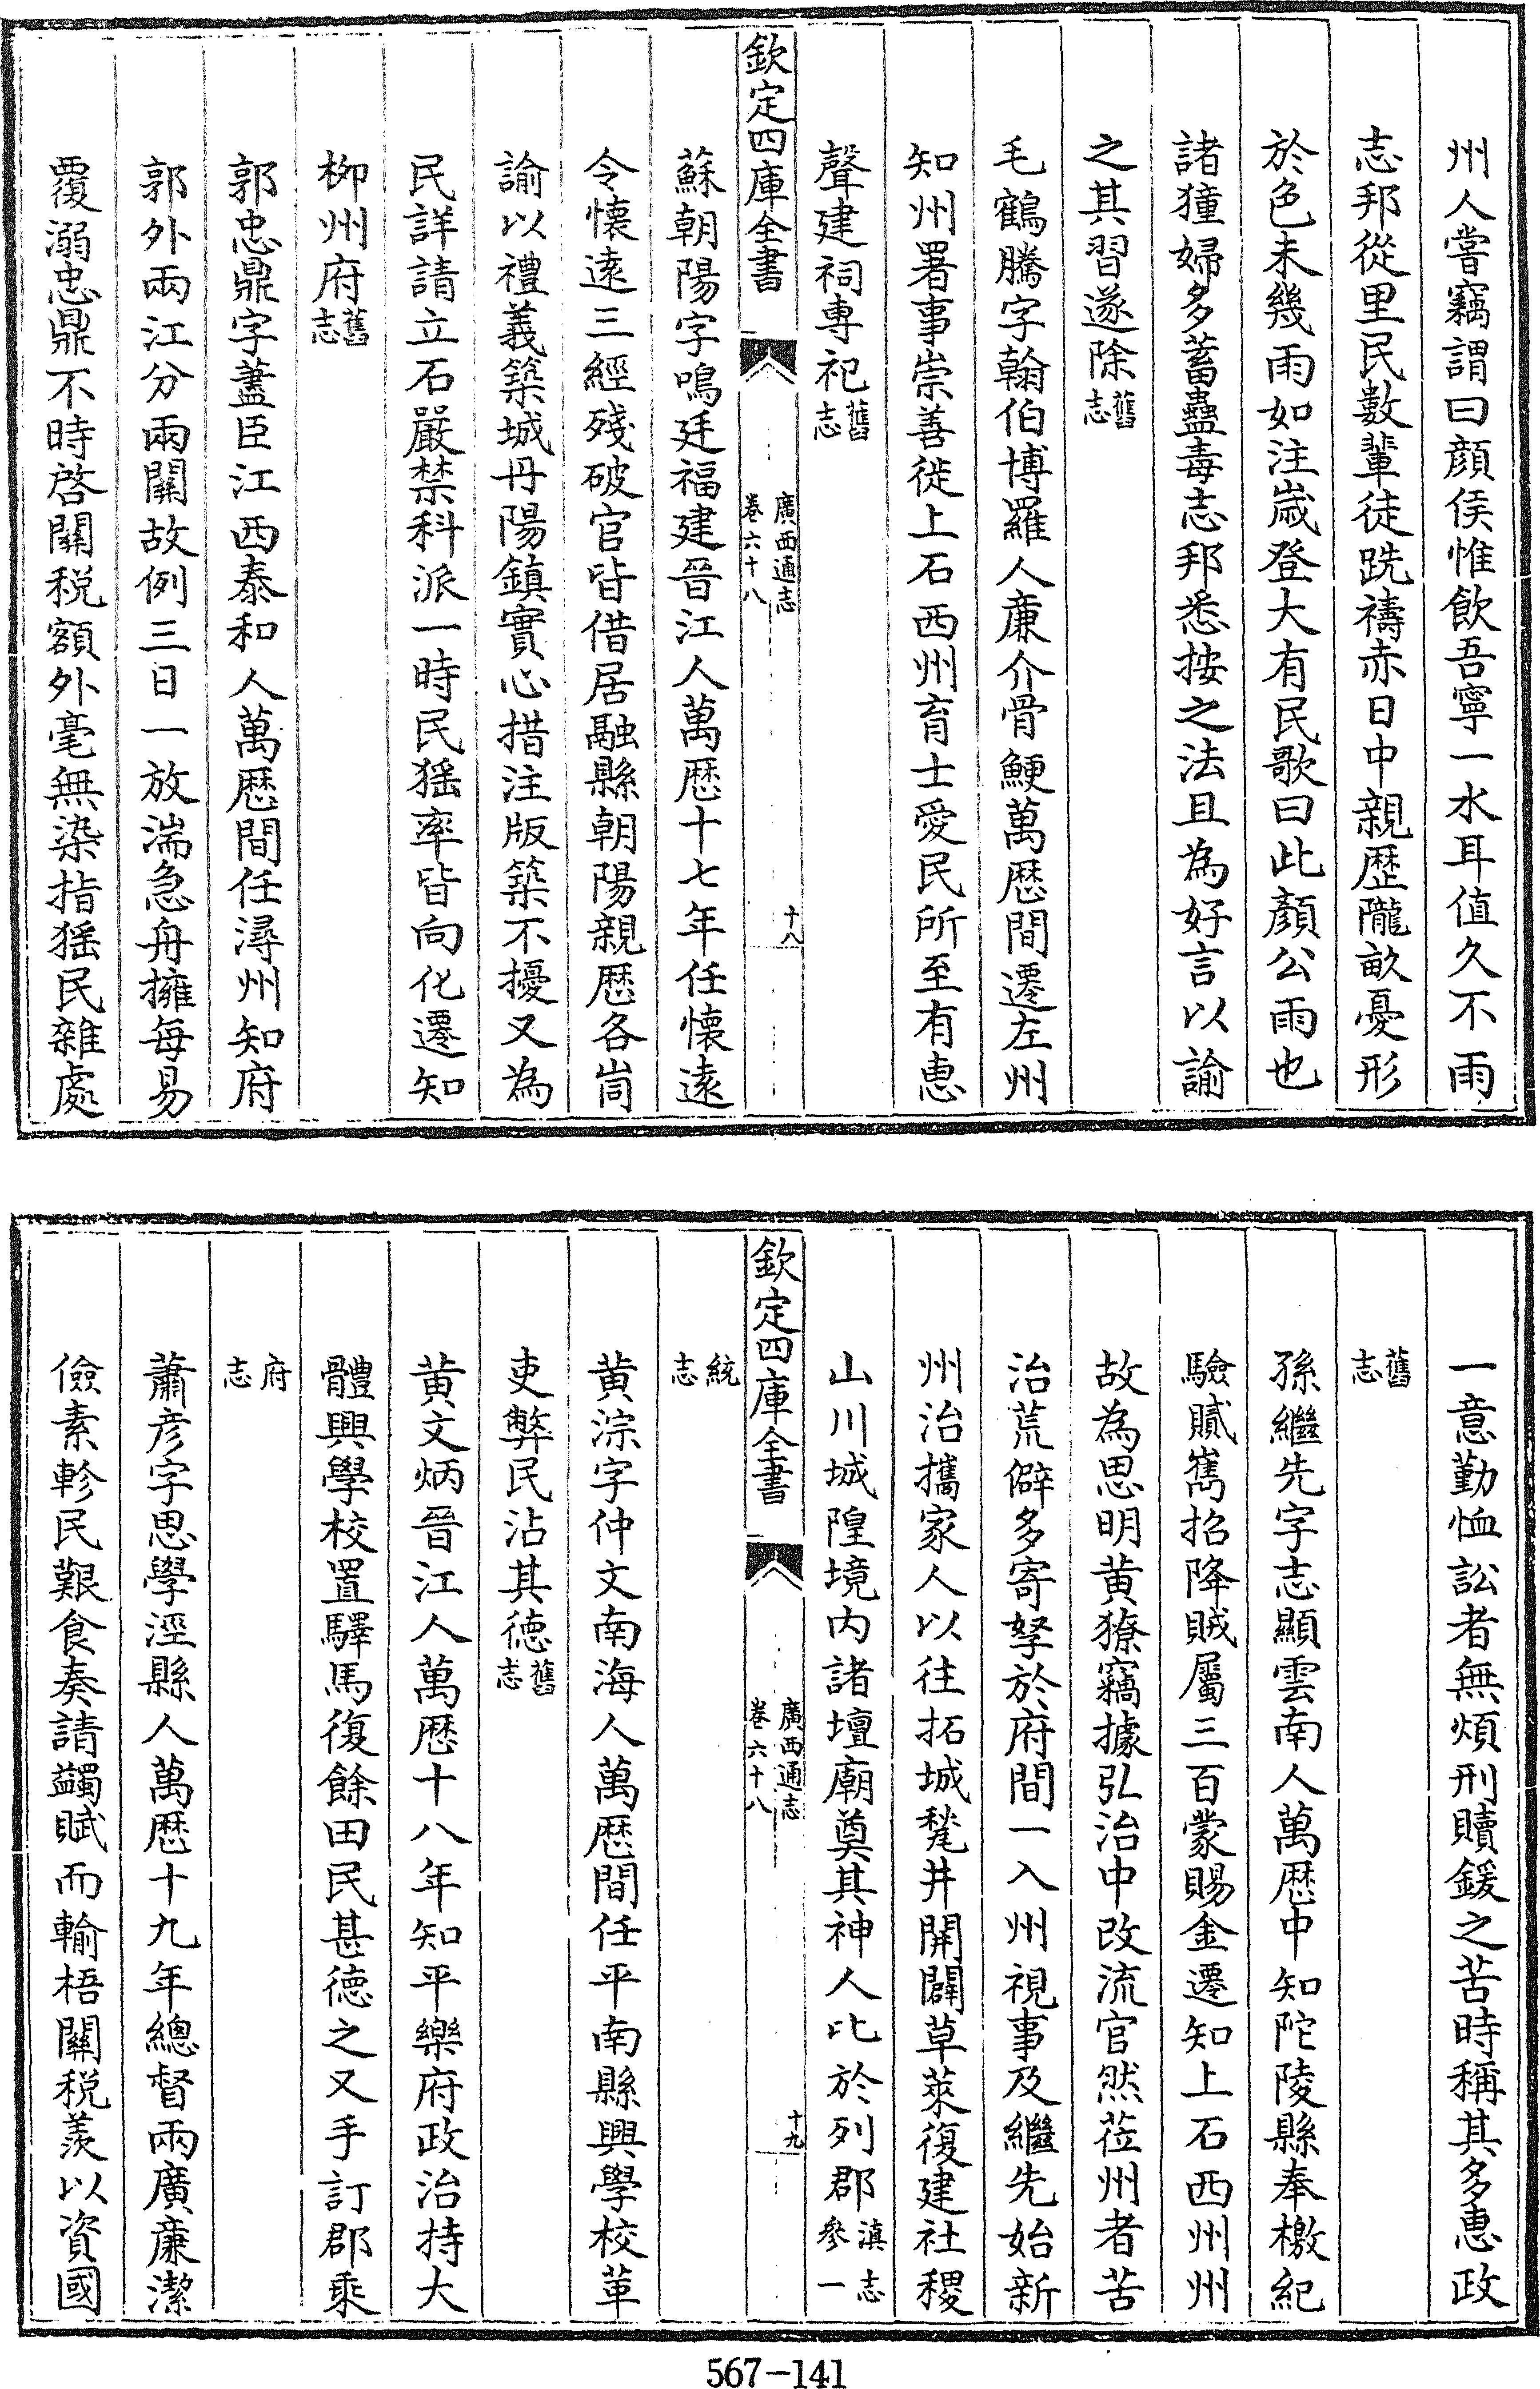 州人嘗竊謂曰顔侯惟飲吾寧一水耳值久不雨
志邦從里民數輩徒跣禱赤日中親歴隴畝憂形
於色未幾雨如注歲登大有民歌曰此顏公雨也
諸獞婦多蓄蠱毒志邦悉按之法且為好言以諭
之其習遂除舊志
毛鶴騰字翰伯博羅人廉介骨鯁萬厯間遷左州
知州署事崇善徙上石西州育士愛民所至有惠
聲建祠專祀舊志
欽定四庫全書 廣西通志卷六十八 十八
蘇朝陽字鳴廷福建晉江人萬厯十七年任懷遠
令懷遠三經殘破官皆借居融縣朝陽親厯各峝
諭以禮義築城丹陽鎮實心措注版築不擾又為
民詳請立石嚴禁科派一時民猺率皆向化遷知
柳州府舊志
郭忠鼎字藎臣江西泰和人萬厯間任潯州知府
郭外兩江分兩關故例三日一放湍急舟擁每易
覆溺忠鼎不時啓關税額外毫無染指猺民雜處
一意勤恤訟者無煩刑贖鍰之苦時稱其多惠政
舊志
孫繼先字志顯雲南人萬厯中知陀陵縣奉檄紀
驗馘雋招降賊屬三百蒙賜金遷知上石西州州
故為思明黄獠竊據弘治中改流官然莅州者苦
治荒僻多寄孥於府間一入州視事及繼先始新
州治攜家人以往拓城甃井開闢草萊復建社稷
山川城隍境内諸壇廟奠其神人比於列郡滇志參一
欽定四庫全書 廣西通志卷六十八 十九
統志
黄淙字仲文南海人萬厯間任平南縣興學校革
吏弊民沾其德舊志
黄文炳晉江人萬厯十八年知平樂府政治持大
體興學校置驛馬復餘田民甚德之又手訂郡乘
府志
蕭彦字思學涇縣人萬厯十九年總督兩廣廉潔
儉素軫民艱食奏請蠲賦而輸梧關税羡以資國
567-141